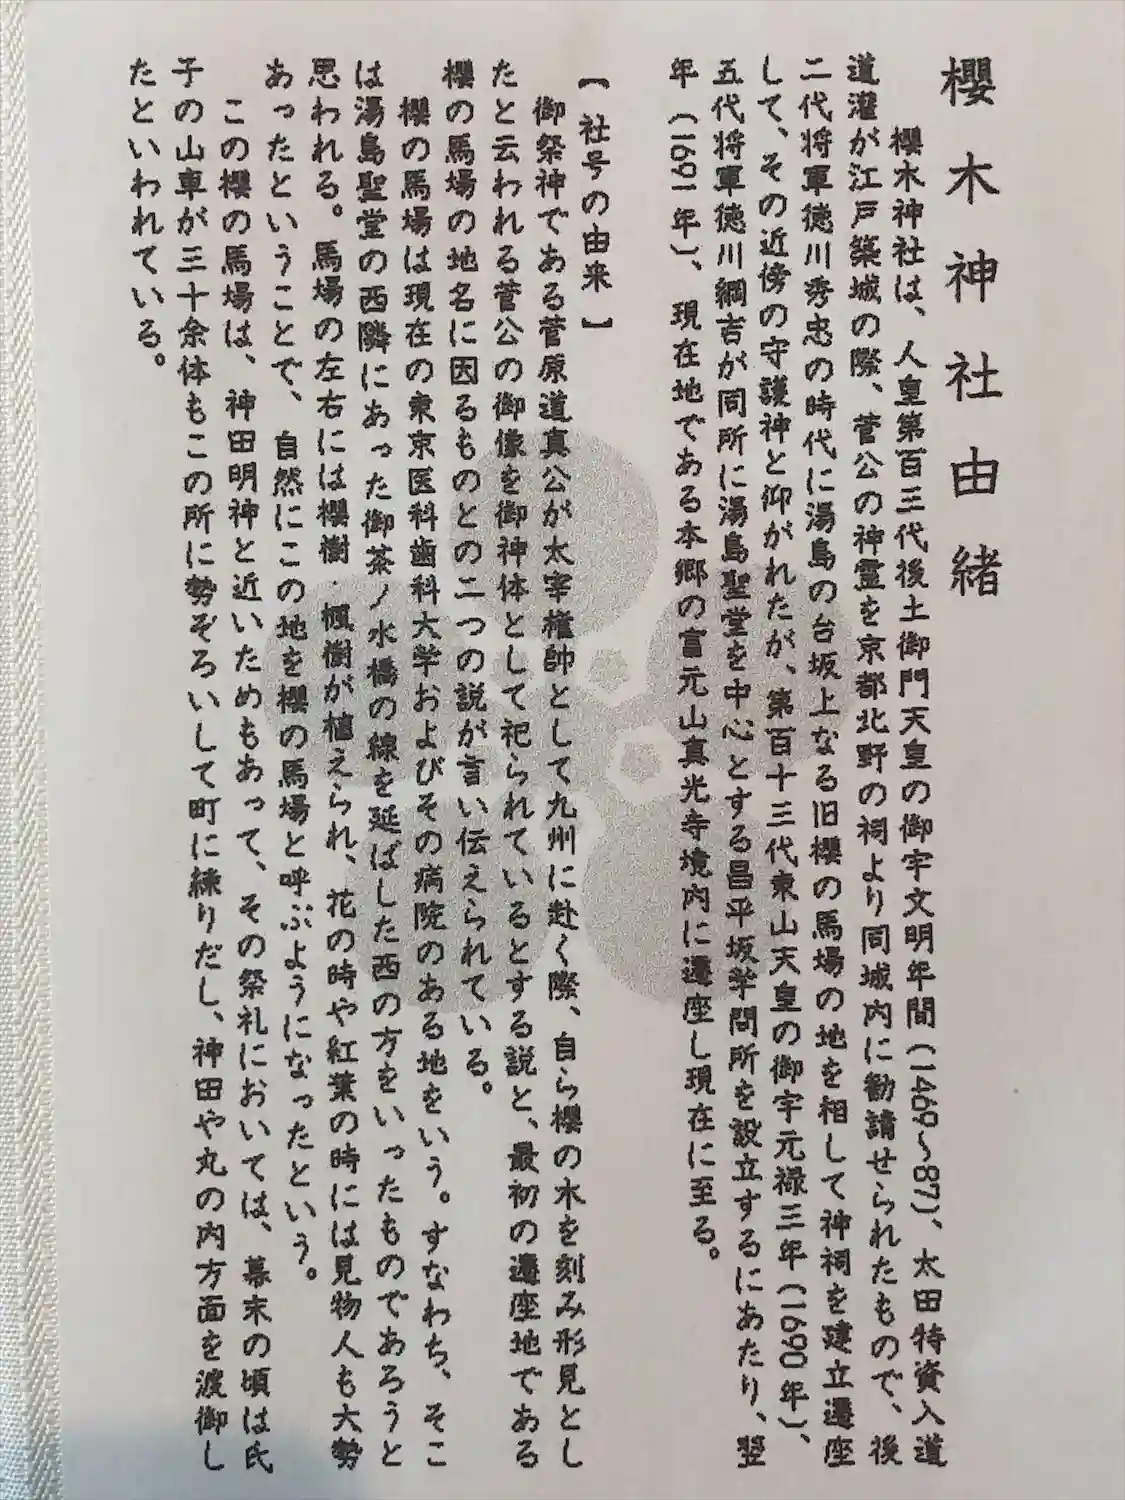 櫻木神社由緒
櫻木神社は、人皇第百三代後土御門天皇の御宇文明年間(1469〜87)、太田特資入道
道灌が江戸築城の際、菅公の神霊を京都北野の祠より同城内に勧請せられたもので、後
二代将軍徳川秀忠の時代に湯島の台坂上なる旧櫻の馬場の地を相して神祠を建立遷座
して、その近傍の守護神と仰がれたが、第百十三代東山天皇の御宇元禄三年(1690年)、
五代将軍徳川綱吉が同所に湯島聖堂を中心とする昌平坂学問所を設立するにあたり、翌
年(1691年)、現在地である本郷の富元山真光寺境内に遷座し現在に至る。
【社号の由来】
御祭神である菅原道真公が太宰権帥として九州に赴く際、自ら櫻の木を刻み形見とし
たと云われる菅公の御像を御神体として祀られているとする説と、最初の遷座地である
櫻の馬場の地名に因るものとの二つの説が言い伝えられている。
櫻の馬場は現在の東京医科歯科大学およびその病院のある地をいう。すなわち、そこ
は湯島聖堂の西隣にあった御茶ノ水橋の線を延ばした西の方をいったものであろうと
思われる。馬場の左右には櫻樹・楓樹が植えられ、花の時や紅葉の時には見物人も大勢
あったということで、自然にこの地を櫻の馬場と呼ぶようになったという。
この櫻の馬場は、神田明神と近いためもあって、その祭礼においては、幕末の頃は氏
子の山車が三十余体もこの所に勢ぞろいして町に練りだし、神田や丸の内方面を渡御し
たといわれている。